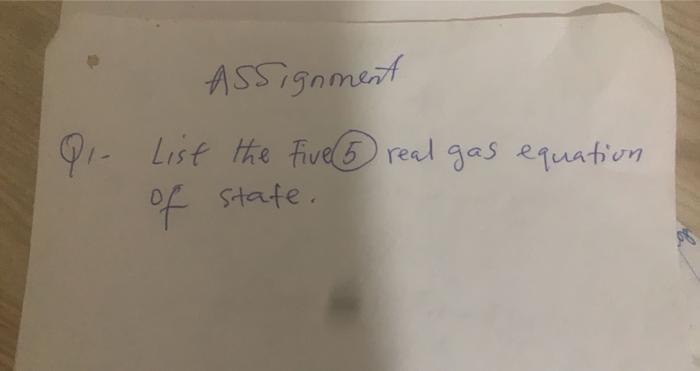 Assignment
Q1- List the Five (5) real gas equation
of state.